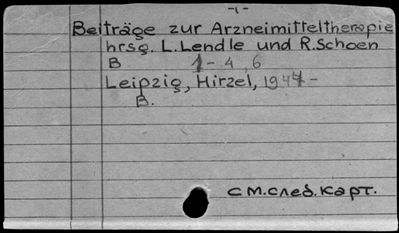 -1-
Beiträge zur Arzneimitteltherapie
hrsg. L. Lendle und R. Schoen
B 1-4, 6
Leipzig, Hirzel, 1947-
B.
См. след. карт.